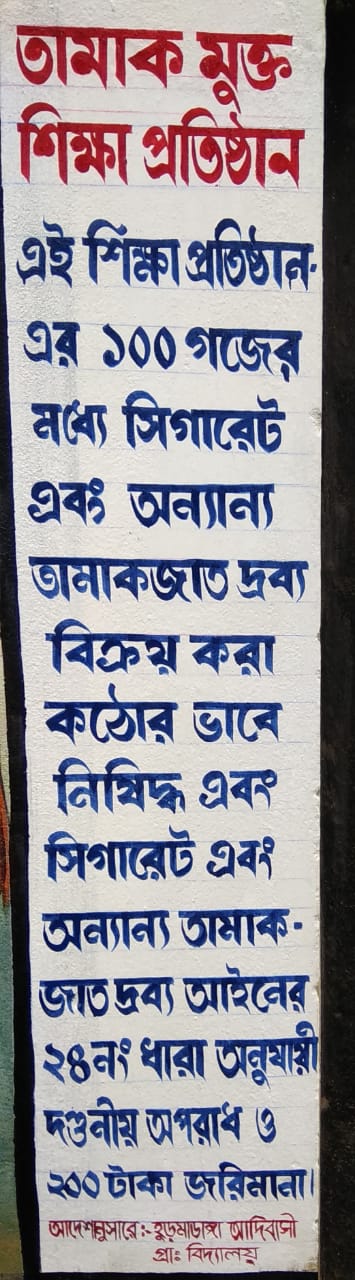 তামাক মুক্ত
শিক্ষা প্রতিষ্ঠান
এই শিক্ষা প্রতিষ্ঠান-
এর ১০০ গজের
মধ্যে সিগারেট
এবং অন্যান্য
তামাকজাত দ্রব্য
বিক্রয় করা
কঠোর ভাবে
নিষিদ্ধ এবং
সিগারেট এবং
অন্যান্য তামাক-
জাত দ্রব্য আইনের
২৪নং ধারা অনুযায়ী
দণ্ডনীয় অপরাধ ও
২০০ টাকা জরিমানা।
আদেশানুসারে:- হুড়মাডাঙ্গা আদিবাসী
প্রাঃ বিদ্যালয়